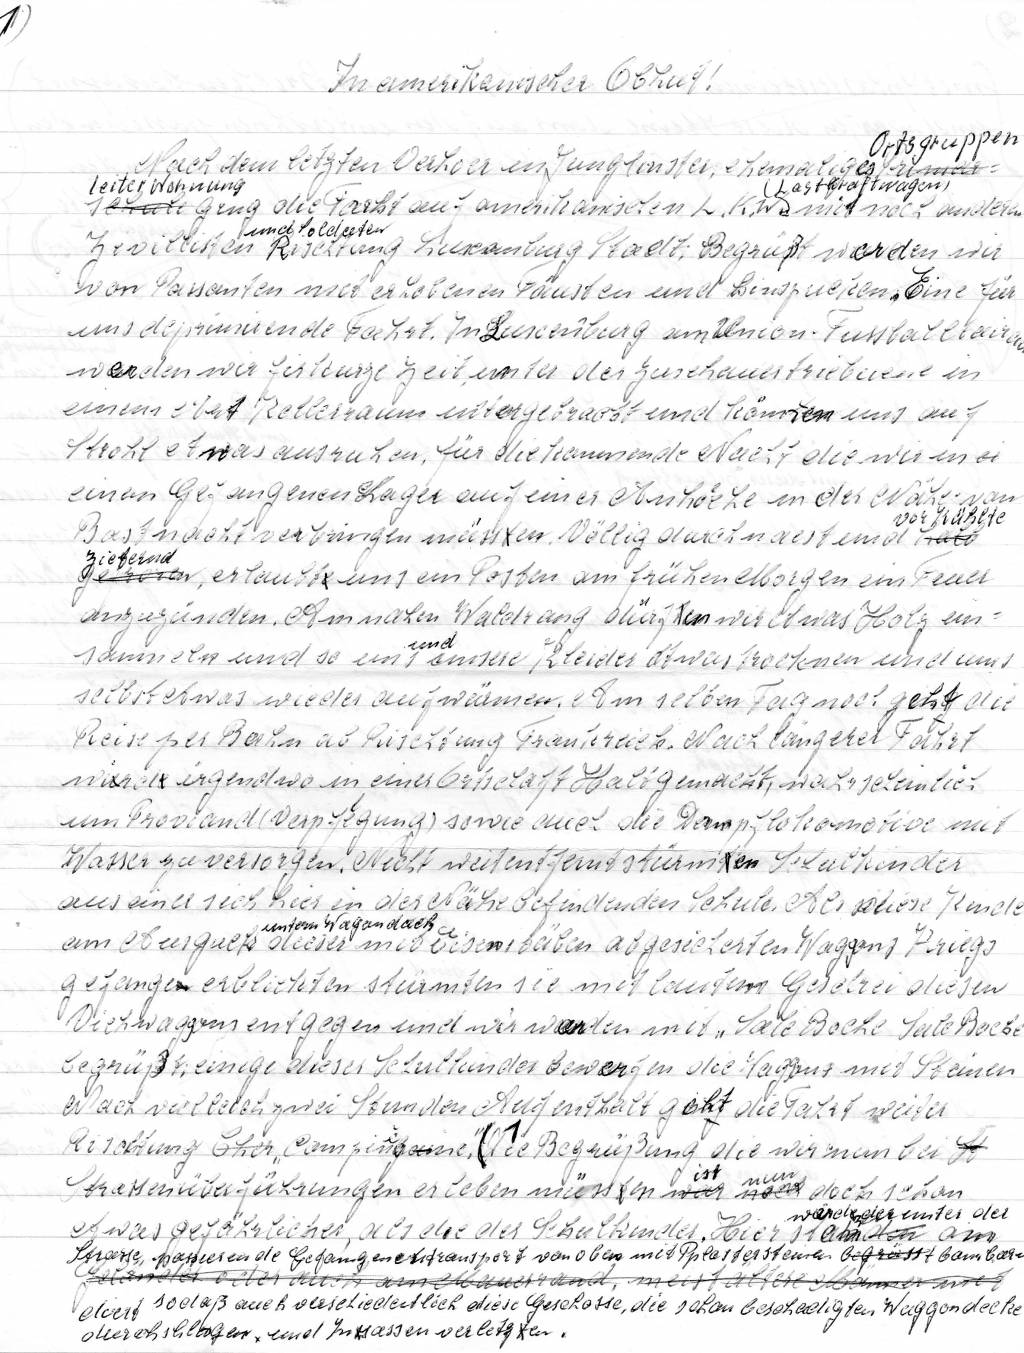 1)
In amerikanischer Obhut!
Ortsgruppen
Nach dem letzten Verhoer in Junglinster, ehemaliges
leiter Wohnung (Lastkraftwagen)
schule ging die Fahrt auf amerikanischen L.K.W. mit noch anderen
und Soldaten
Zivillisten Rischtung Luxemburg Stadt. Begrüßt werden wir
von Passanten mit erhobenen Fäusten und Einspucken. Eine für
uns deprimirende Fahrt. In Luxenburg am Union-Fussballstaion
werden wir für kurze Zeit, unter der Zuschauertriebuene in
einem Kellerraum untergebracht und können uns auf
Stroh etwas ausruhen, für die kommende Nacht die wir in
einen Gefangenen Lager auf einer Anhöehe in der Nähe von
vor Kählte
Bastnacht verbringen müssen. Völlig durchnaest und halb
zieternd
gefroren, erlaubt uns ein Posten am frühen Morgen ein Feuer
anzuzünden. Am nahen Waldrang dürfen wir etwas Holz ein=
und
sammeln und so uns unsere Kleider etwas trocknen und uns
selbst etwas wieder aufwärmen. Am selben Tag noch geht die
Reise per Bahn ab Rischtung Frankreich. Nach längerer Fahrt
wird irgendwo in einer Ortschaft Halt gemacht, wahrscheinlich
um Proviand (Verpflegung) sowie auch die Dampflokomotive mit
Wasser zu versorgen. Nicht weit entfernt stürmten Schulkinder
aus einer sich hier in der Nähe befindenden Schule. Als diese Kinder
unterm Wagondach
am Ausguck dieser mit Eisenstäben abgesicherten Waggons Kriegs
gefangen erblickten stürmten sie mit lautem Geschrei diesen
Viehwaggons entgegen und wir werden mit „Sale Boche Sale Boche
begrüßt, einige dieser Schulkinder bewerfen die Waggons mit Steinen
Nach vielleich zwei Stunden Aufenthalt geht die Fahrt weiter
Rischtung Cher, (Die Begrüßung die wir nun bei
ist nun
Strassenüberführungen erleben müssen war noch doch schon
würde der unter der
etwas gefährlicher, als die der Schulkinder. Hier standen am
Strasse, passierende Gefangenentransport von oben mit Pplastersteinen begrüsst bombar=
Geländer oder auch am Mauerrand, meist ältere Männer und
diert sodaß auch verschiedentlich diese Geschosse, die schon beschädigten Waggondecke
durchschlagen, und Insassen verletzten.